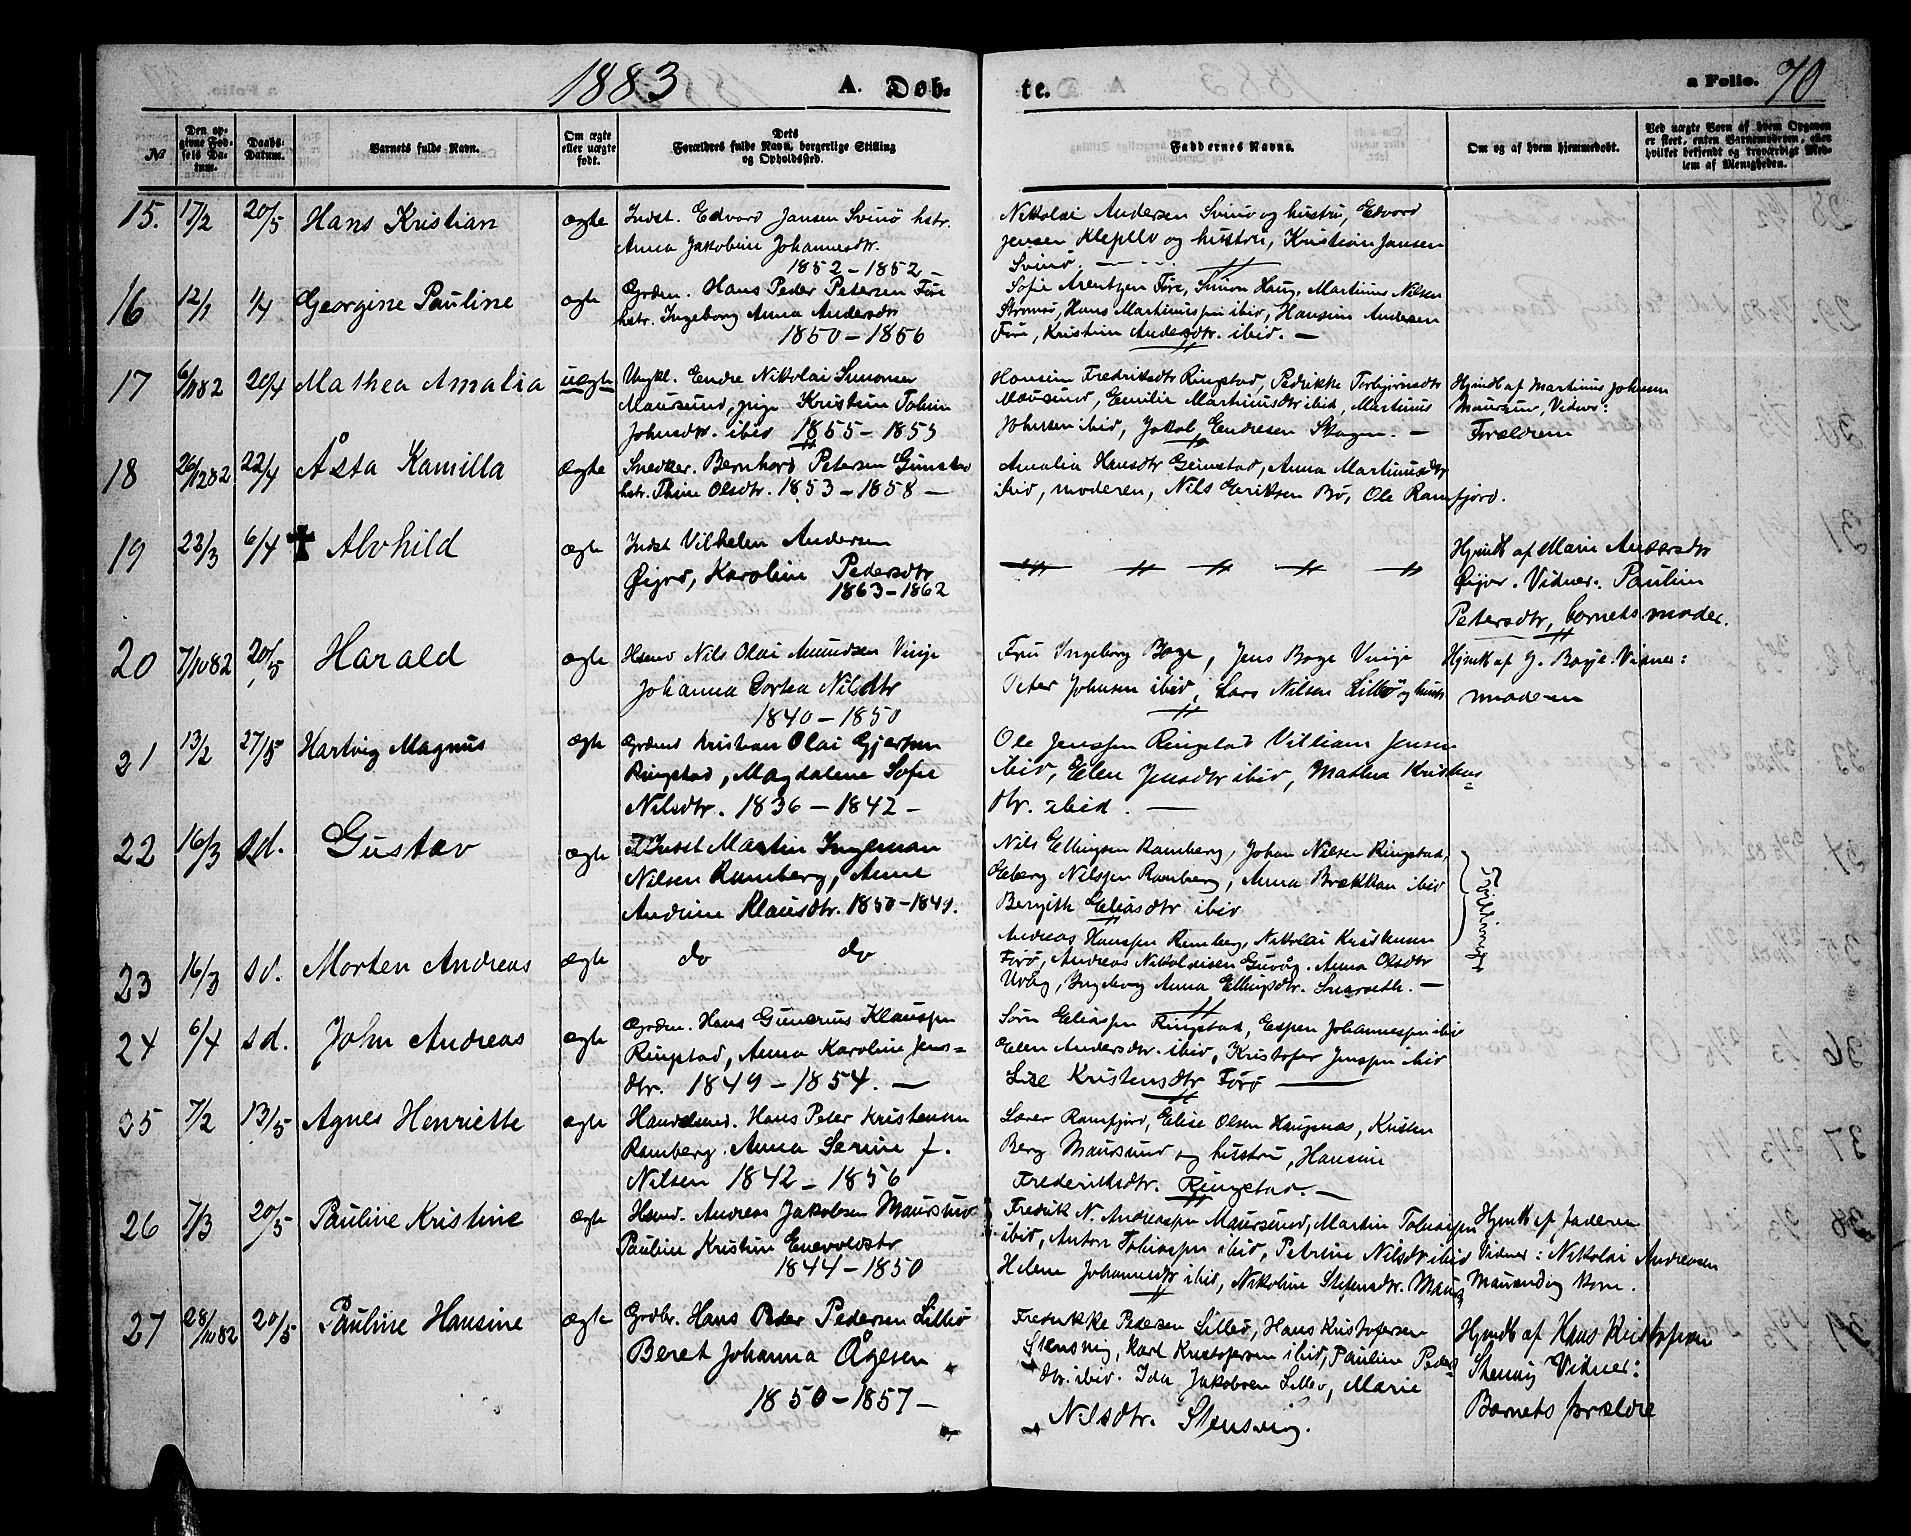 1883 A. Døb- te. a Folio. 70
No
Den opgivne Fødsels Datum.
Daabs-Datum.
Barnets fulde Navn.
Om ægte eller uægte født.
Dets Forældres fulde Navn, borgerlige Stilling og Opholdssted.
Faddernes Navne.
Om og af hvem hjemmedøbt.
Ved uægte Børn af hvem Opgaven er skeet, enten Barnemoderen, eller hvilket bekjendt og troværdigt Medlem af Menigheden.
15. 17/2 20/5 Hans Kristian ægte
Indst. Edvard Jansen Svinø hstr.
Anna Jakobine Johannesdtr.
1852 – 1852 –
Nikolai Andersen Svinø og hustru, Edvard
Jensen og hustru, Kristian Jansen
Svinø.
16 12/1 1/4 Georgine Pauline ægte
Grdm. Hans Peder Petersen Føre
hstr. Ingeborg Anna Andersdtr
1850 – 1856
Sofie Arentzen Føre, Simon Haug, Martinus Nilsen
Hans Martinussen ibid, Hansine Andersen
Føre, Kristine Andersdtr. ibid. –
17 6/11 82 20/4 Mathea Amalia uægte
Ungkl. Endre Nikolai Simonsen
Maursund, pige Kristine Tobine
Johnsdtr. ibid 1855 – 1855
Hansine Fredriksdtr Ringstad, Pedrikke Torbjørnsdtr
Maursund, Emilie Martinusdtr ibid, Martinus
Johnsen ibid, Jakob Endresen Skagen. –
Hjmdt af Martinus Johnsen
Maursund, Vidner:
Forældrene
18 26/12 82 22/4 Åsta Kamilla ægte
Snedker. Bernhard Petersen Gimstad
hstr. Thine Olsdtr. 1853 – 1858 –
Amalia Hansdtr Gimstad, Anna Martinusdtr
ibid, moderen, Nils Eriksen Bø, Ole Ramfjord.
19 23/3 6/4 † Alvhild ægte
Indst Vilhelm Andersen
Øijord, Karoline Pedersdtr
1863 – 1862
Hjmdt af Marie Andersdtr
Øijor. Vidner. Pauline
Petersdtr, barnets moder.
20 7/10 82 20/5 Harald ægte
Hsmd Nils Olai Amundsen Vinje
Johanna Dortea Nilsdtr
1840 – 1850
Fru Ingeborg Boye, Jens Boye Vinje
Peter Johnsen ibid, Lars Nilsen Lillø og hustr
Hjmdt af J. Boye. Vidner:
moderen
21 13/2 27/5 Hartvig Magnus ægte
Grdmd Kristian Olai Gjertsen
Ringstad, Magdalene Sofie
Nilsdtr. 1836 – 1842 –
Ole Jenssen Ringstad Villiam Jensen
ibid, Elen Jensdtr ibid, Mathea Kristens=
dtr. ibid. –
22 16/3 sd. Gustav ægte
Indst Martin Ingeman
Nilsen Ramberg, Anne
Andrine Klausdtr. 1850 – 1849.
Nils Ellingsen Ramberg, Johan Nilsen Ringstad,
Nilssen Ramberg, Anna Brækkan ibid
Bergith Eliasdtr ibid
Tvillinger
23 16/3 sd. Morten Andreas ægte
do do
Andreas Hanssen Ramberg, Nikolai Kristensen
Førø, Andreas Nikolaisen Guvåg. Anna Olsdtr
Uvåg, Ingeborg Anna Ellingsdtr. –
24 6/4 sd. John Andreas ægte
Grdm. Hans Gunerius Klaussen
Ringstad, Anna Karoline Jens=
dtr. 1849 – 1854. –
Søren Eliassen Ringstad, Espen Johannessen ibid
Elen Andersdtr. ibid, Kristofer Jenssen ibid
Lise Kristensdtr Førø –
25 7/2 13/5 Agnes Henriette ægte
Handelsmd. Hans Peter Kristensen
Ramberg. Anna Serine f.
Nilsen 1842 – 1856
Lærer Ramfjord, Elise Olsen Haugsnæs, Kristen
Berg Maursund og hustru, Hansine
Frederiksdtr. Ringstad. –
26 7/3 20/5 Pauline Kristine ægte
Hsmd. Andreas Jakobsen Maursund
Pauline Kristine Enevoldsdtr
1844 – 1850
Fredrik N. Andreassen Maursund, Martin Tobiassen
ibid, Anton Tobiassen ibid, Petrine Nilsdtr ibid
Helene Johannesdtr ibid, Nikoline Stefensdtr. Maurs
Hjmdt af faderen
Vidner: Nikolai Andreasen
Maursund og kone.
27 28/10 82 20/5 Pauline Hansine ægte
Grdbr. Hans Peder Pedersen Lillø
Beret Johanna Ågesen
1850 – 1857 –
Fredrikke Pedersen Lillø, Hans Kristofersen
Stensvig, Karl Kristofersen ibid, Pauline Peders
dtr. ibid. Ida Jakobsen Lillø, Marie
Nilsdtr. Stensvig.
Hjmdt af Hans Kristofersen
Stensvig Vidner:
Barnets forældre